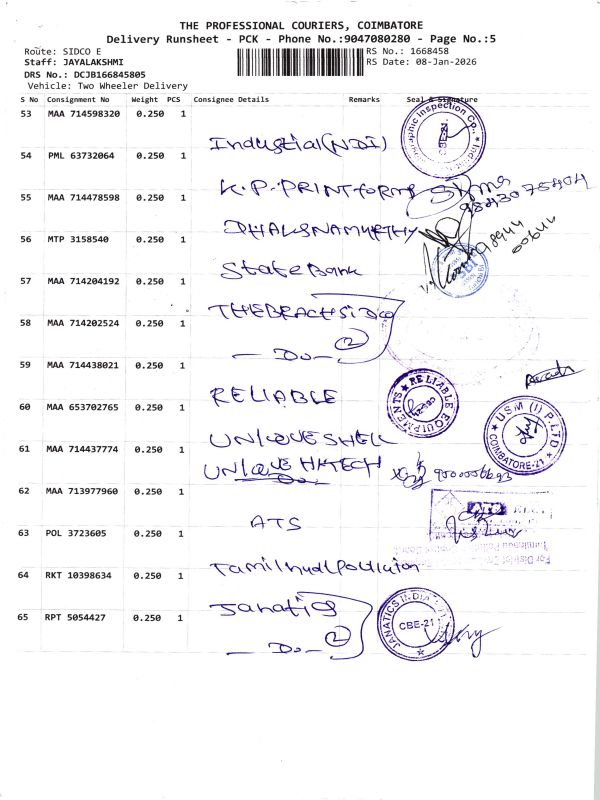 THE PROFESSIONAL COURIERS, COIMBATORE
Delivery Runsheet - PCK - Phone No.:9047080280 - Page No.:5
Route: SIDCO E
RS No.: 1668458
Staff: JAYALAKSHMI
RS Date: 08-Jan-2026
DRS No.: DCJB166845805
Vehicle: Two Wheeler Delivery
S No Consignment No Weight PCS Consignee Details Remarks Seal & Signature
53 MAA 714598320 0.250 1
Industial (NDI)
54 PML 63732064 0.250 1
K.P. PRINT forms
9843075404
55 MAA 714478598 0.250 1
DHAKSNAMURTHY
98944
00644
56 MTP 3158540 0.250 1
State Bank
SBI
57 MAA 714204192 0.250 1
THEBRACH SIDCO
58 MAA 714202524 0.250 1
— Do — 2
59 MAA 714438021 0.250 1
RELIABLE
RELIABLE EQUIPMENTS
60 MAA 653702765 0.250 1
UNIQUE SHELL
USM (I) P LTD
COIMBATORE-21
61 MAA 714437774 0.250 1
UNIQUE HITECH
62 MAA 713977960 0.250 1
ATS
63 POL 3723605 0.250 1
Tamilnudpollution
64 RKT 10398634 0.250 1
Janatics
JANATICS INDIA
CBE-21
65 RPT 5054427 0.250 1
— Do — 2